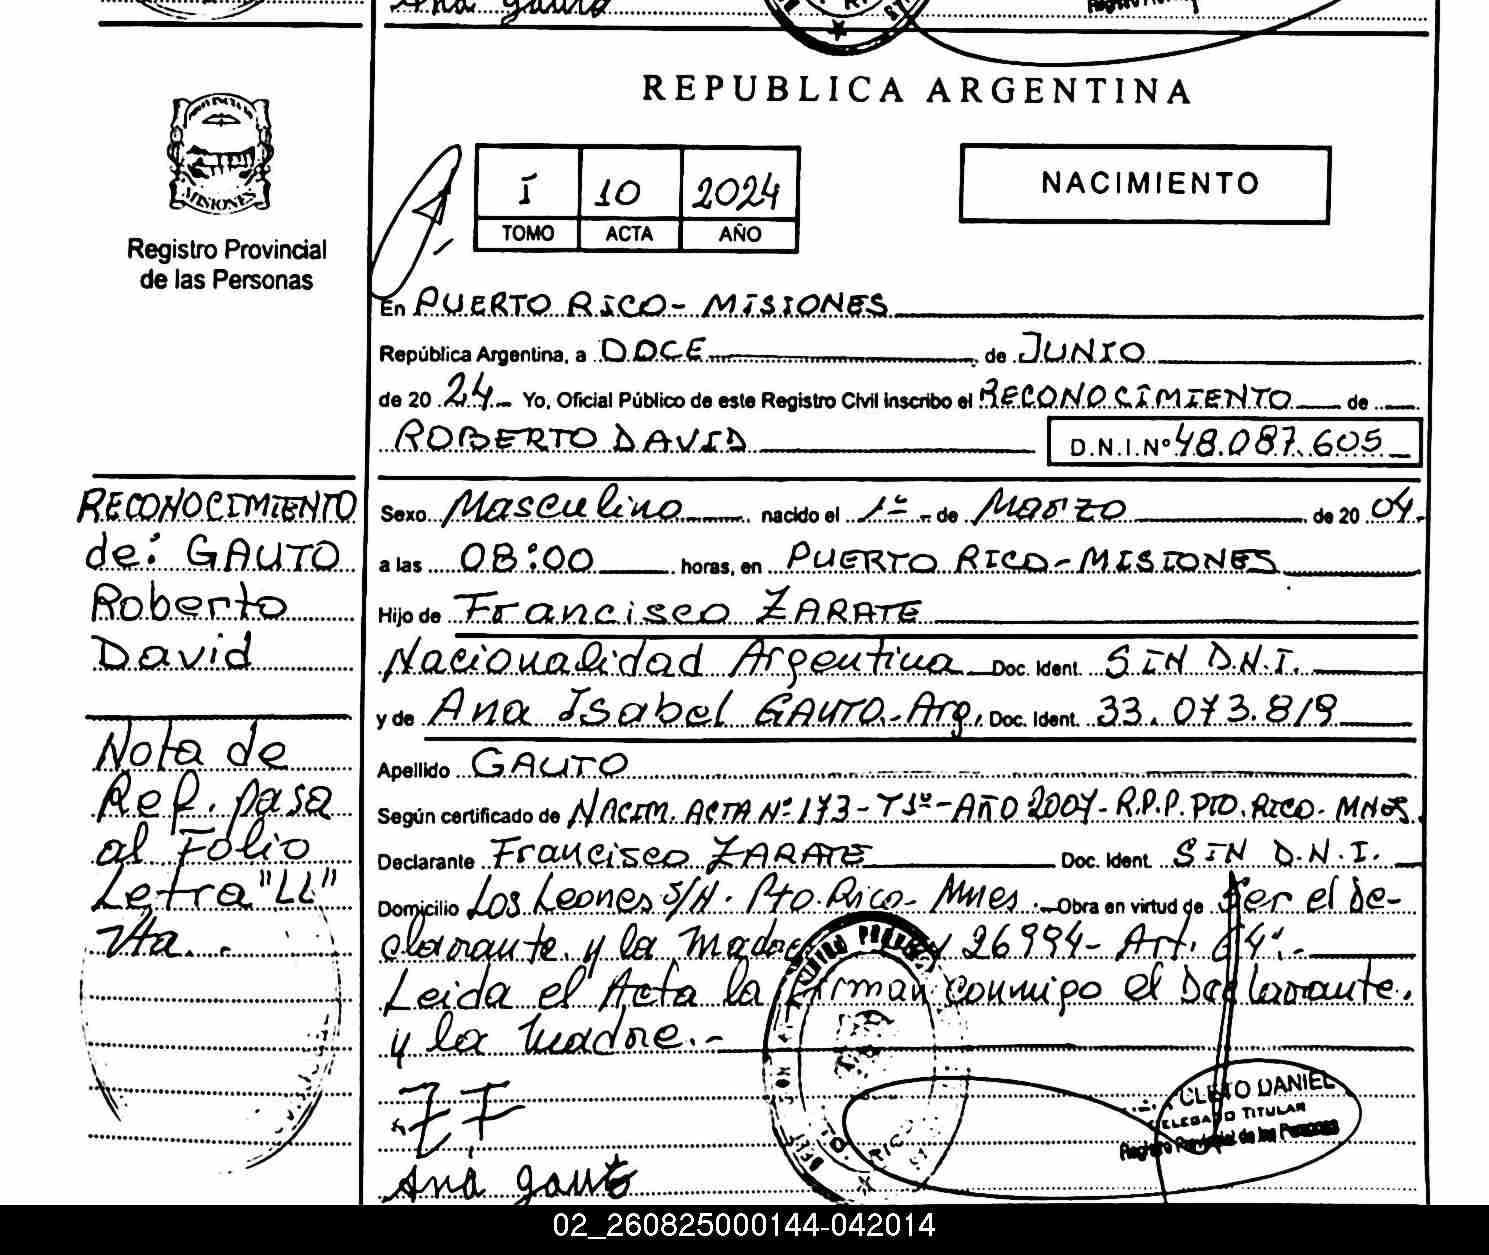 Ana Gauto
REPUBLICA ARGENTINA
MISIONES
Registro Provincial
de las Personas
I 10 2024
TOMO ACTA AÑO
NACIMIENTO
En PUERTO RICO- MISIONES
República Argentina, a DOCE de JUNIO
de 20 24 Yo, Oficial Público de este Registro Civil inscribo el RECONOCIMIENTO de
ROBERTO DAVID D.N.I.Nº 48.087.605
RECONOCIMIENTO
de: GAUTO
Roberto
David
Sexo Masculino nacido el 1º de Marzo de 20 04
a las 08:00 horas, en PUERTO RICO-MISIONES
Hijo de Francisco ZARATE
Nacionalidad Argentina Doc. Ident. SIN D.N.I.
y de Ana Isabel GAUTO-Arg. Doc. Ident. 33.073.819
Nota de
Ref. pasa
al Folio
Letra "LL"
Vta..
Apellido GAUTO
Según certificado de NACIM. ACTA Nº 173-Tº1º-AÑO 2007-R.P.P. PTO. RICO- MNES.
Declarante Francisco ZARATE Doc. Ident. SIN D.N.I.
Domicilio Los Leones s/N. Pto. Rico- Mnes. Obra en virtud de Ser el De-
clarante y la Madre 26994- Art. 64º.-
Leida el Acta la firman conmigo el Declarante.
y la madre.-
CLETO DANIEL
DELEGADO TITULAR
Registro Provincial de las Personas
Ana Gauto
02_260825000144-042014